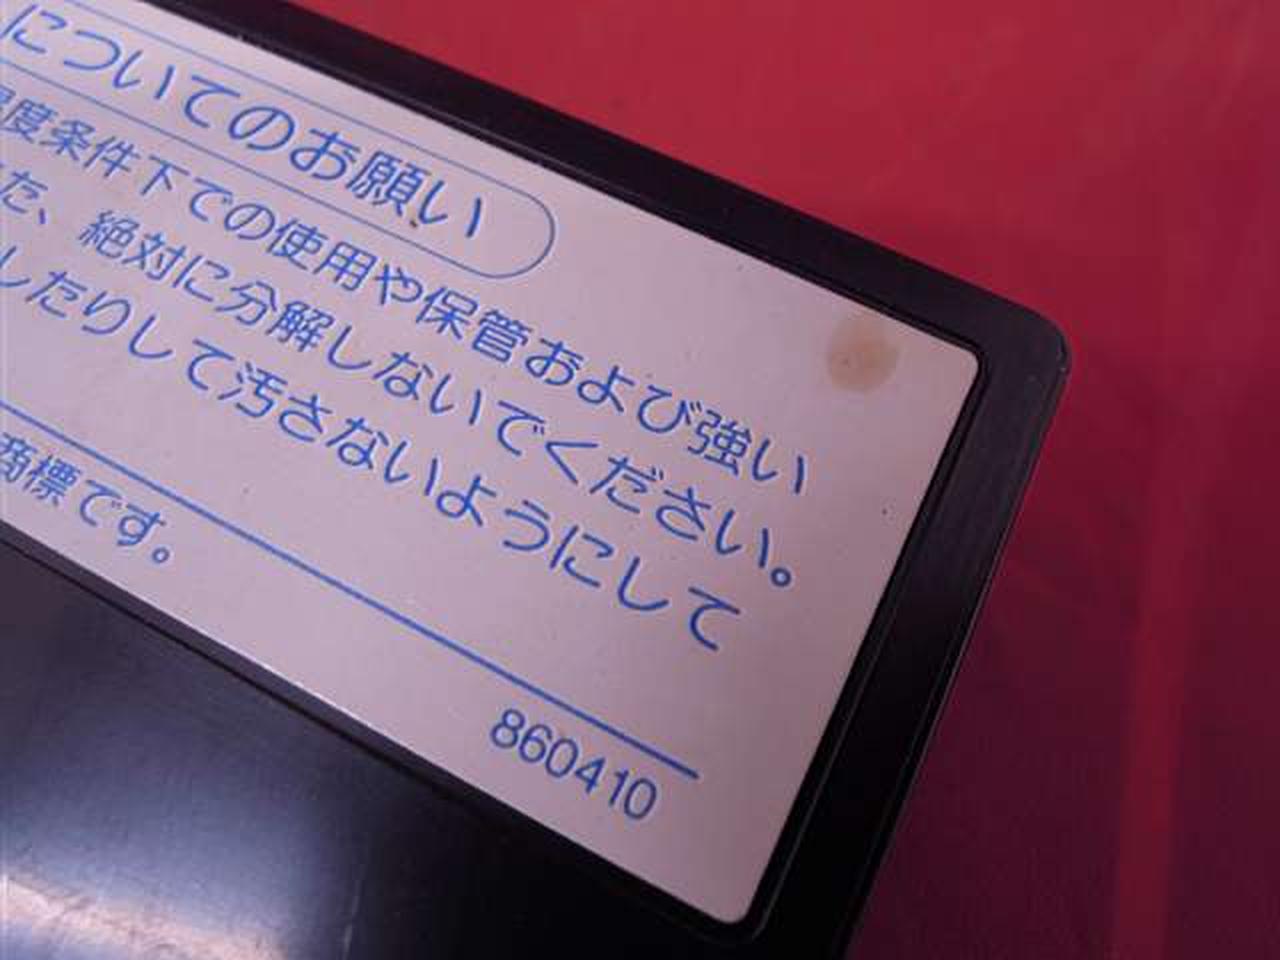 についてのお願い
度条件下での使用や保管および強い
た、絶対に分解しないでください。
したりして汚さないようにして
商標です。
860410